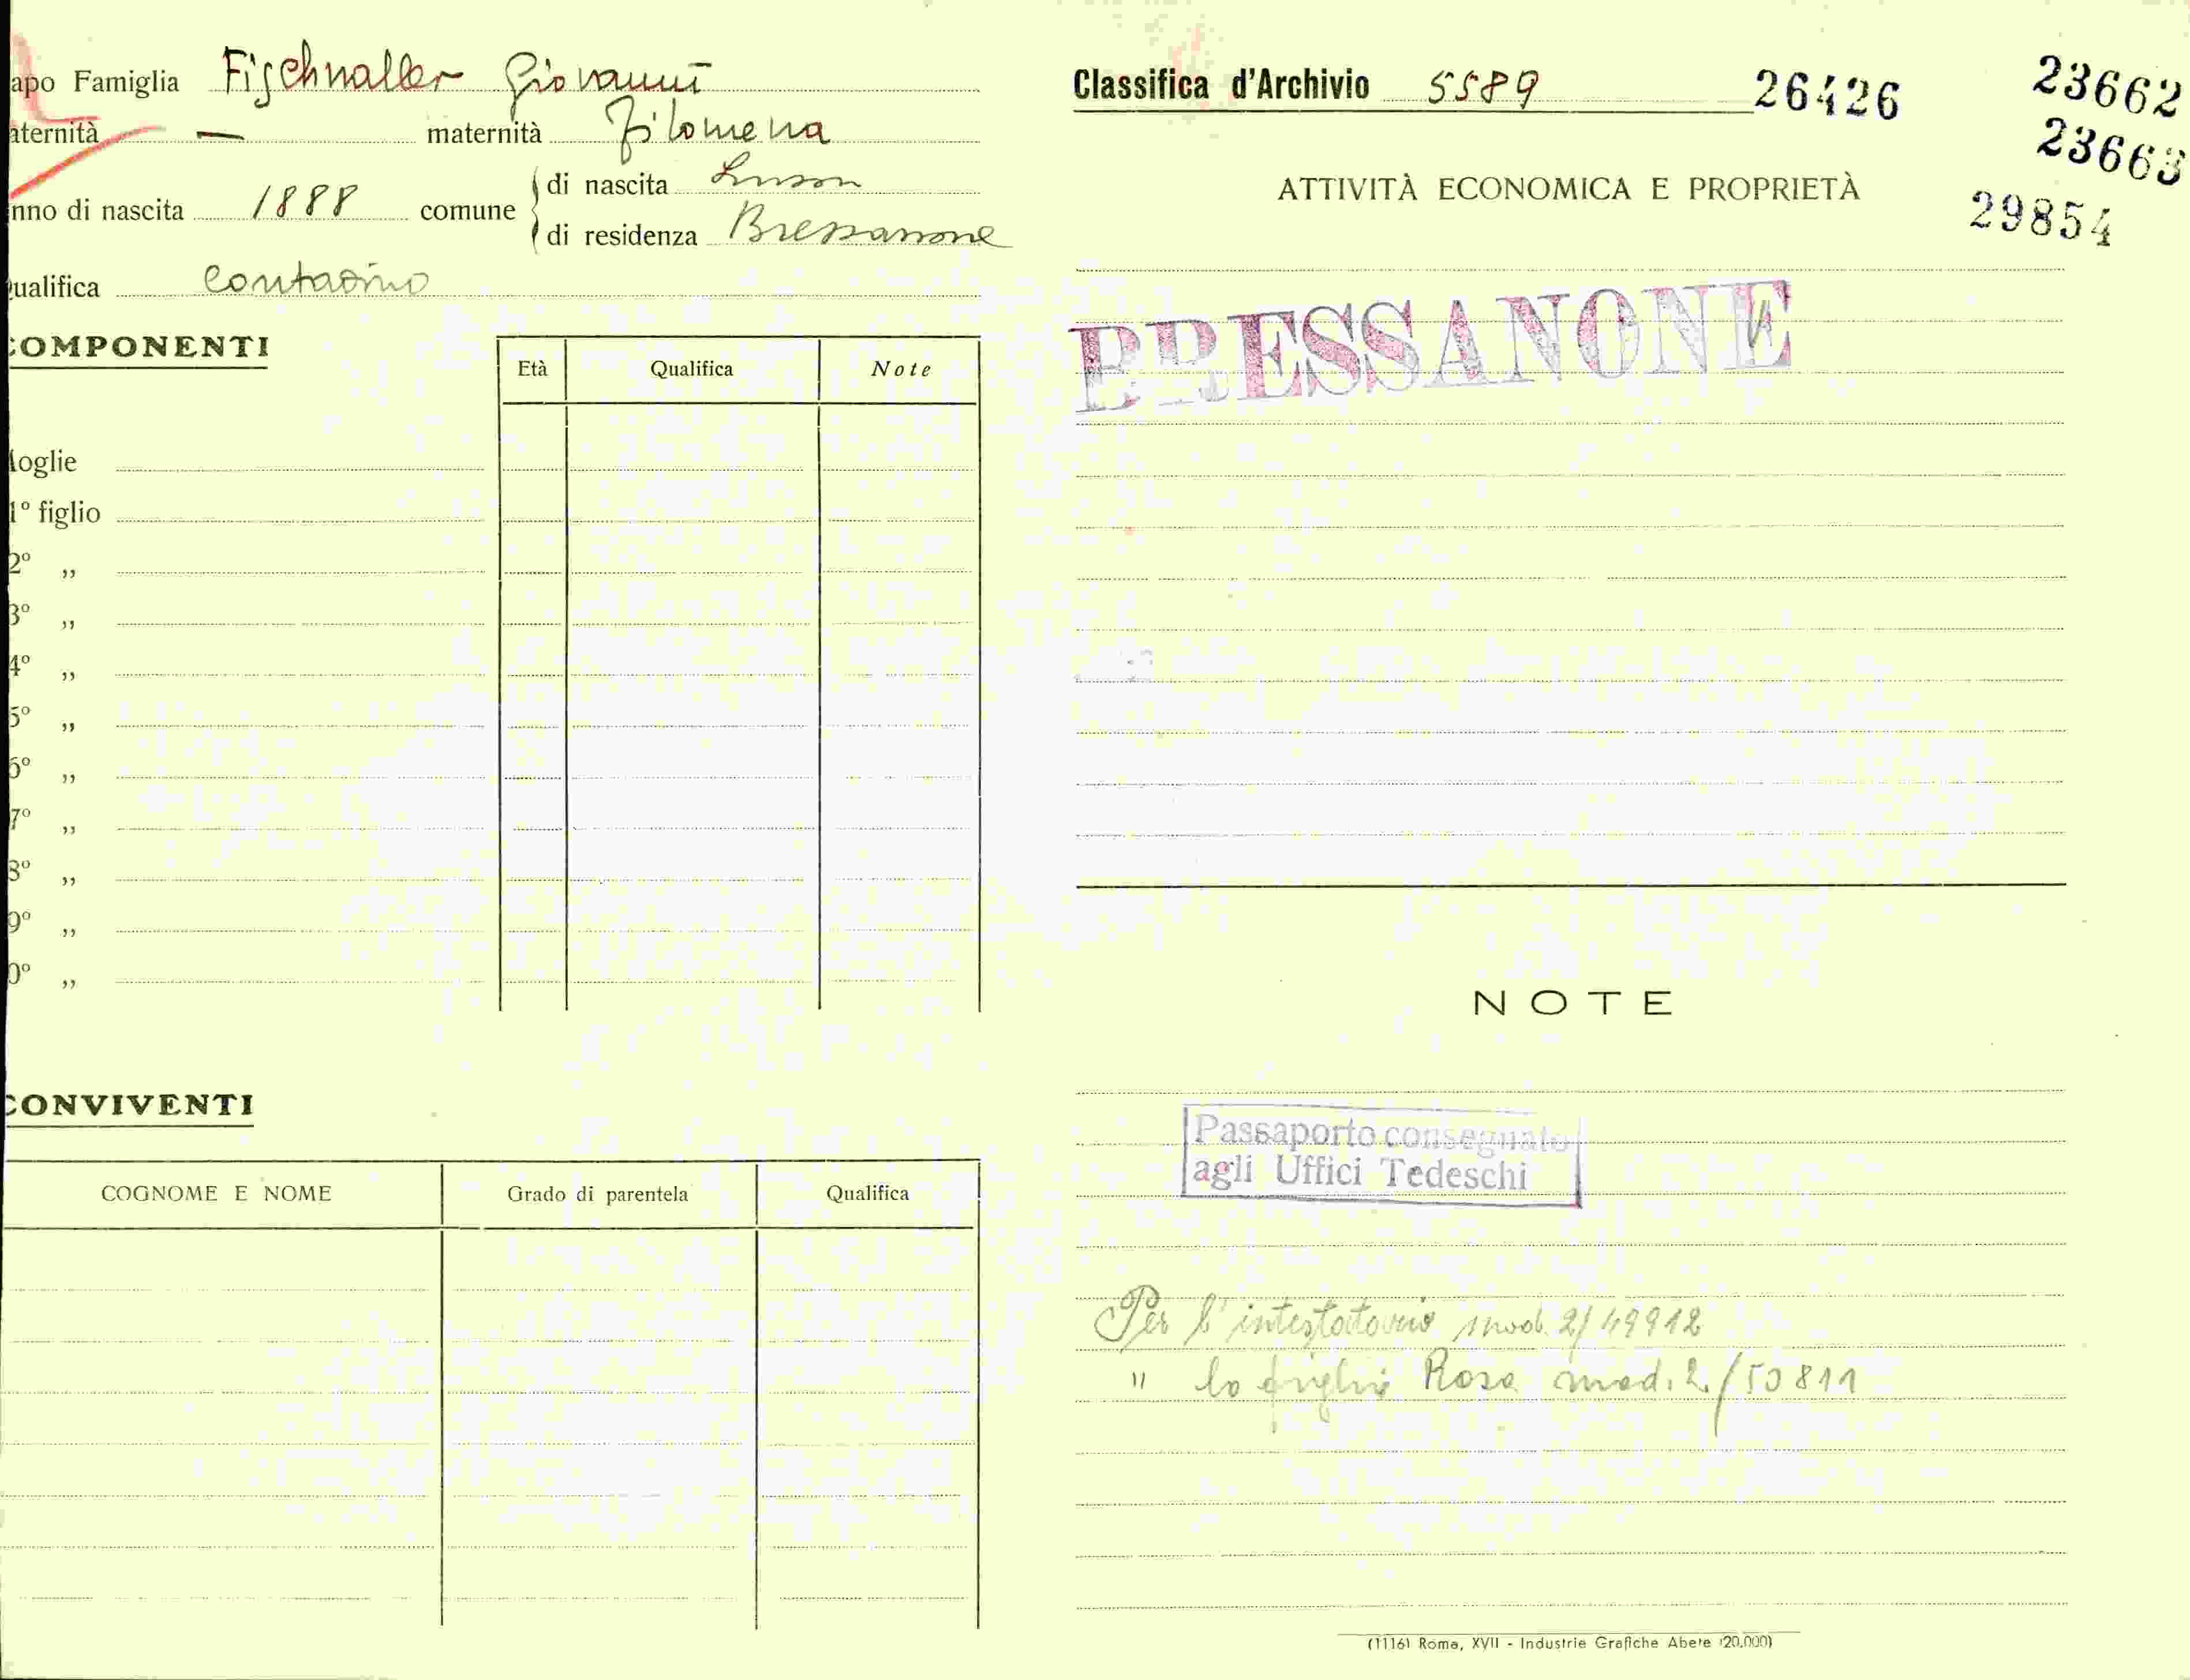 apo Famiglia Fischnaller Giovanni
aternità — maternità Filomena
nno di nascita 1888 comune
di nascita Luson
di residenza Bressanone
ualifica contadino
COMPONENTI
Età Qualifica Note
oglie
1º figlio
2º ,,
3º ,,
4º ,,
5º ,,
6º ,,
7º ,,
8º ,,
9º ,,
0º ,,
CONVIVENTI
COGNOME E NOME Grado di parentela Qualifica
Classifica d'Archivio 5589 26426
23662
23663
29854
ATTIVITÀ ECONOMICA E PROPRIETÀ
BRESSANONE
NOTE
Passaporto consegnato
agli Uffici Tedeschi
Per l'intestatario mod. 2/49912
" la figlia Rosa mod. 2/50811
(1116) Roma, XVII - Industrie Grafiche Abete (20.000)